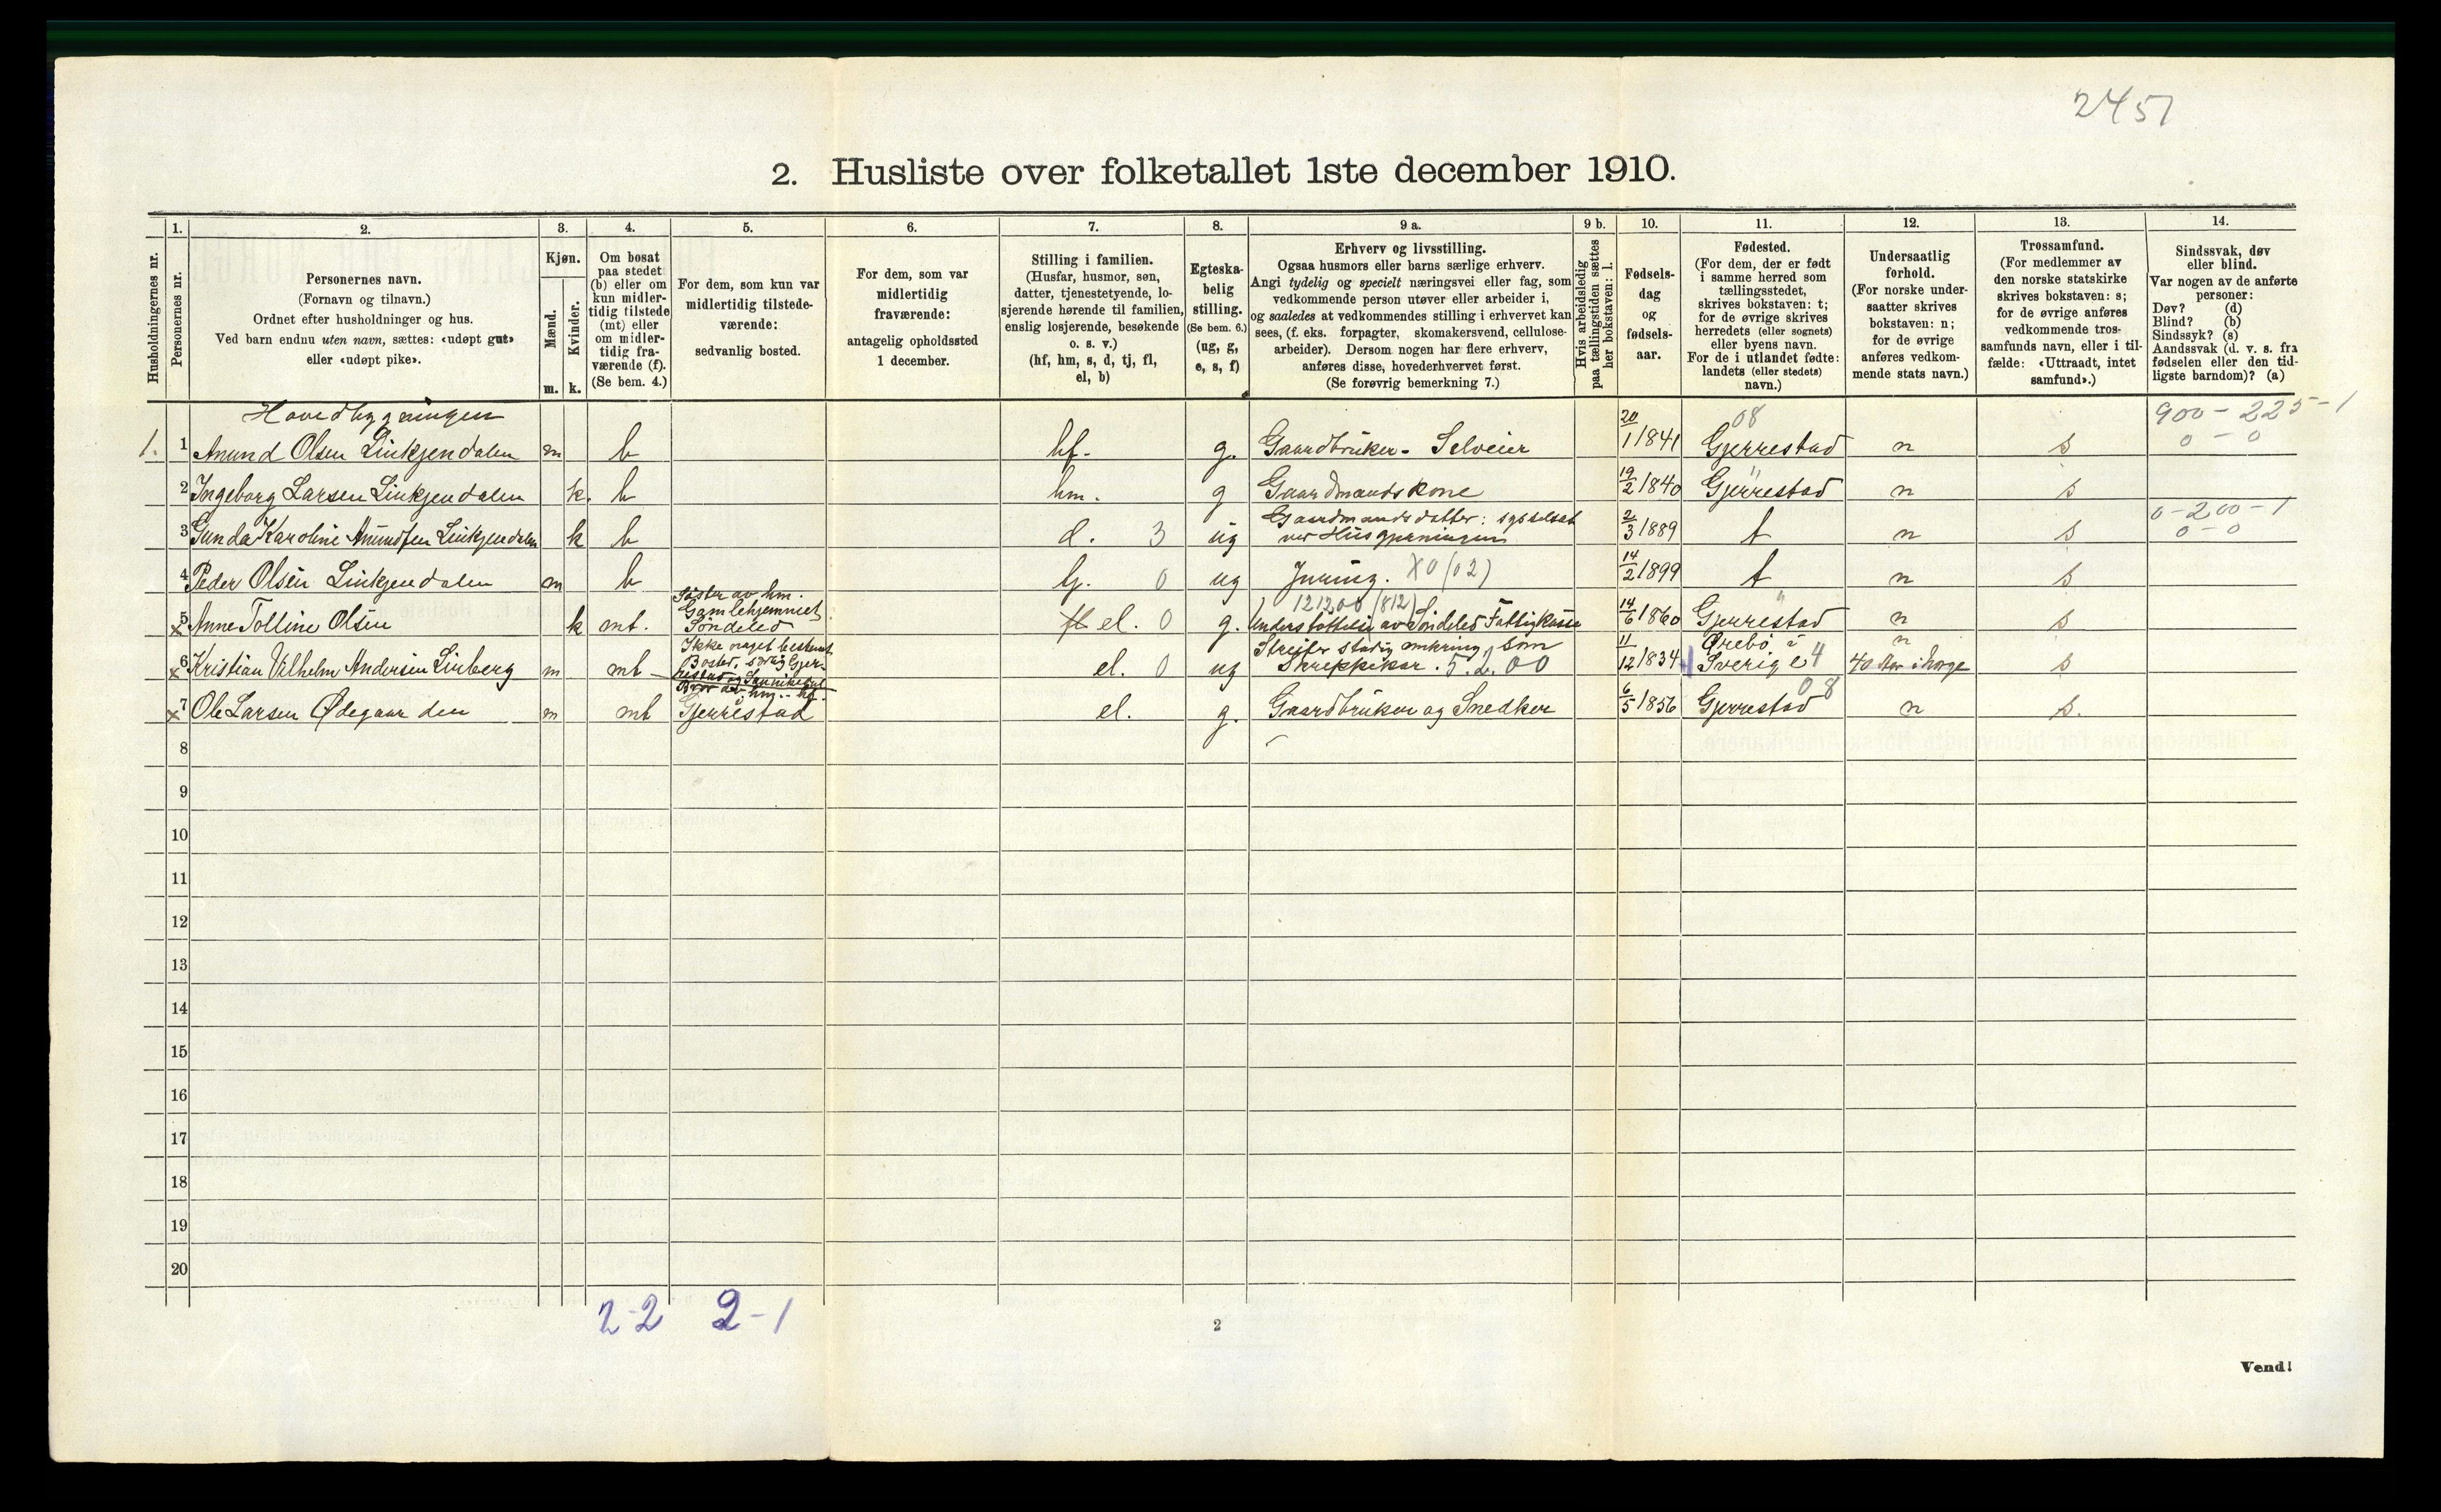 2451
2. Husliste over folketallet 1ste december 1910.
Husholdningernes nr.
1.
Personernes nr.
2.
Personernes navn.
(Fornavn og tilnavn.)
Ordnet efter husholdninger og hus.
Ved barn endnu uten navn, sættes: «udøpt gut»
eller «udøpt pike».
3.
Kjøn.
Mænd.
m.
Kvinder.
k.
4.
Om bosat
paa stedet
(b) eller om
kun midler-
tidig tilstede
(mt) eller
om midler-
tidig fra-
værende (f).
(Se bem. 4.)
5.
For dem, som kun var
midlertidig tilstede-
værende:
sedvanlig bosted.
6.
For dem, som var
midlertidig
fraværende:
antagelig opholdssted
1 december.
7.
Stilling i familien.
(Husfar, husmor, søn,
datter, tjenestetyende, lo-
sjerende hørende til familien,
enslig losjerende, besøkende
o. s. v.)
(hf, hm, s, d, tj, fl,
el, b)
8.
Egteska-
belig
stilling.
(Se bem. 6.)
(ug, g,
e, s, f)
9 a.
Erhverv og livsstilling.
Ogsaa husmors eller barns særlige erhverv.
Angi tydelig og specielt næringsvei eller fag, som
vedkommende person utøver eller arbeider i,
og saaledes at vedkommendes stilling i erhvervet kan
sees, (f. eks. forpagter, skomakersvend, cellulose-
arbeider). Dersom nogen har flere erhverv,
anføres disse, hovederhvervet først.
(Se forøvrig bemerkning 7.)
9 b.
Hvis arbeidsledig
paa tællingstiden sættes
her bokstaven: l.
10.
Fødsels-
dag
og
fødsels-
aar.
11.
Fødested.
(For dem, der er født
i samme herred som
tællingsstedet,
skrives bokstaven: t;
for de øvrige skrives
herredets (eller sognets)
eller byens navn.
For de i utlandet fødte:
landets (eller stedets)
navn.)
12.
Undersaatlig
forhold.
(For norske under-
saatter skrives
bokstaven: n;
for de øvrige
anføres vedkom-
mende stats navn.)
13.
Trossamfund.
(For medlemmer av
den norske statskirke
skrives bokstaven: s;
for de øvrige anføres
vedkommende tros-
samfunds navn, eller i til-
fælde: «Uttraadt, intet
samfund».)
14.
Sindssvak, døv
eller blind.
Var nogen av de anførte
personer:
Døv? (d)
Blind? (b)
Sindssyk? (s)
Aandssvak (d. v. s. fra
fødselen eller den tid-
ligste barndom)? (a)
Hovedbygningen 08 900 - 225 - 1
1. 1 Anund Olsen Linkjendalen m b hf. g. Gaardbruker - Selveier 20/1 1841 Gjerrestad n s 0 - 0
2 Ingeborg Larsen Linkjendalen k. b hm. g Gaardmandskone 19/2 1840 Gjerrestad n s
3 Gunda Karoline Anundsen Linkjendalen k b d. 3 ug Gaardmandsdatter: sysselsat ved Husgjerningen 2/3 1889 t n s 0 - 200 - 1 0 - 0
4 Peder Olsen Linkjendalen m b 0 ug X0 (02) 14/2 1899 t n s
5 x Anne Tolline Olsen k mt. Søster av hm. Gamlehjemmet Søndeled fl el. 0 g. 121200 (812) Understøttelse av Søndeled Fattigkasse 14/6 1860 Gjerrestad n s
6 x Kristian Vilhelm Andersen Linberg m mt Ikke noget bestemt Bosted, el. 0 ug Streifer stadig omkring som Skreppekar. 5.2.00 11/12 1834 Ørebo i Sverige 4 n 40 i Norge s
7 x Ole Larsen Ødegaarden m mt Bror av hm. Gjerrestad el. g. Gaardbruker og Snedker 6/5 1856 Gjerrestad 08 n s.
8
9
10
11
12
13
14
15
16
17
18
19
20
2-2 2-1
2
Vend!